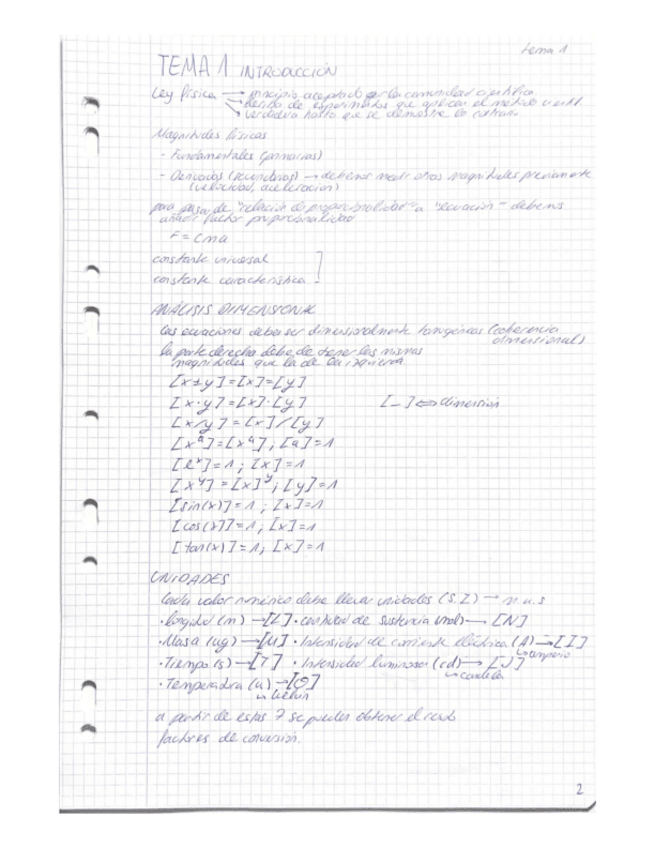 tema 1
TEMA 1 INTRODUCCIÓN
Ley física → principio aceptado por la comunidad científica
→ deriva de experimentos que aplican el método científ.
→ verdadera hasta que se demuestre lo contrario
Magnitudes físicas
- Fundamentales (primarias)
- Derivadas (secundarias) → debemos medir otras magnitudes previamente
(velocidad, aceleración)
para pasar de "relación de proporcionalidad" a "ecuación" debemos
añadir factor proporcionalidad
F = cma
constante universal
constante característica
ANÁLISIS DIMENSIONAL
las ecuaciones deben ser dimensionalmente homogéneas (coherencia
dimensional)
la parte derecha debe de tener las mismas
magnitudes que la de la izquierda
[x±y]=[x]=[y]
[x·y]=[x]·[y] [_] ⇔ dimensión
[x/y]=[x]/[y]
[xᵃ]=[xᵃ]; [a]=1
[eˣ]=1; [x]=1
[xʸ]=[x]ʸ; [y]=1
[sin(x)]=1; [x]=1
[cos(x)]=1; [x]=1
[tan(x)]=1; [x]=1
UNIDADES
Cada valor numérico debe llevar unidades (S.I) →
· longitud (m) → [L] · cantidad de sustancia (mol) → [N]
· Masa (kg) → [M] · Intensidad de corriente eléctrica (A) → [I]
↳ amperio
· Tiempo (s) → [T] · Intensidad luminosa (cd) → [J]
↳ candela
· Temperatura (k) → [Θ]
↳ kelvin
a partir de estas 7 se pueden obtener el resto
factores de conversión.
2